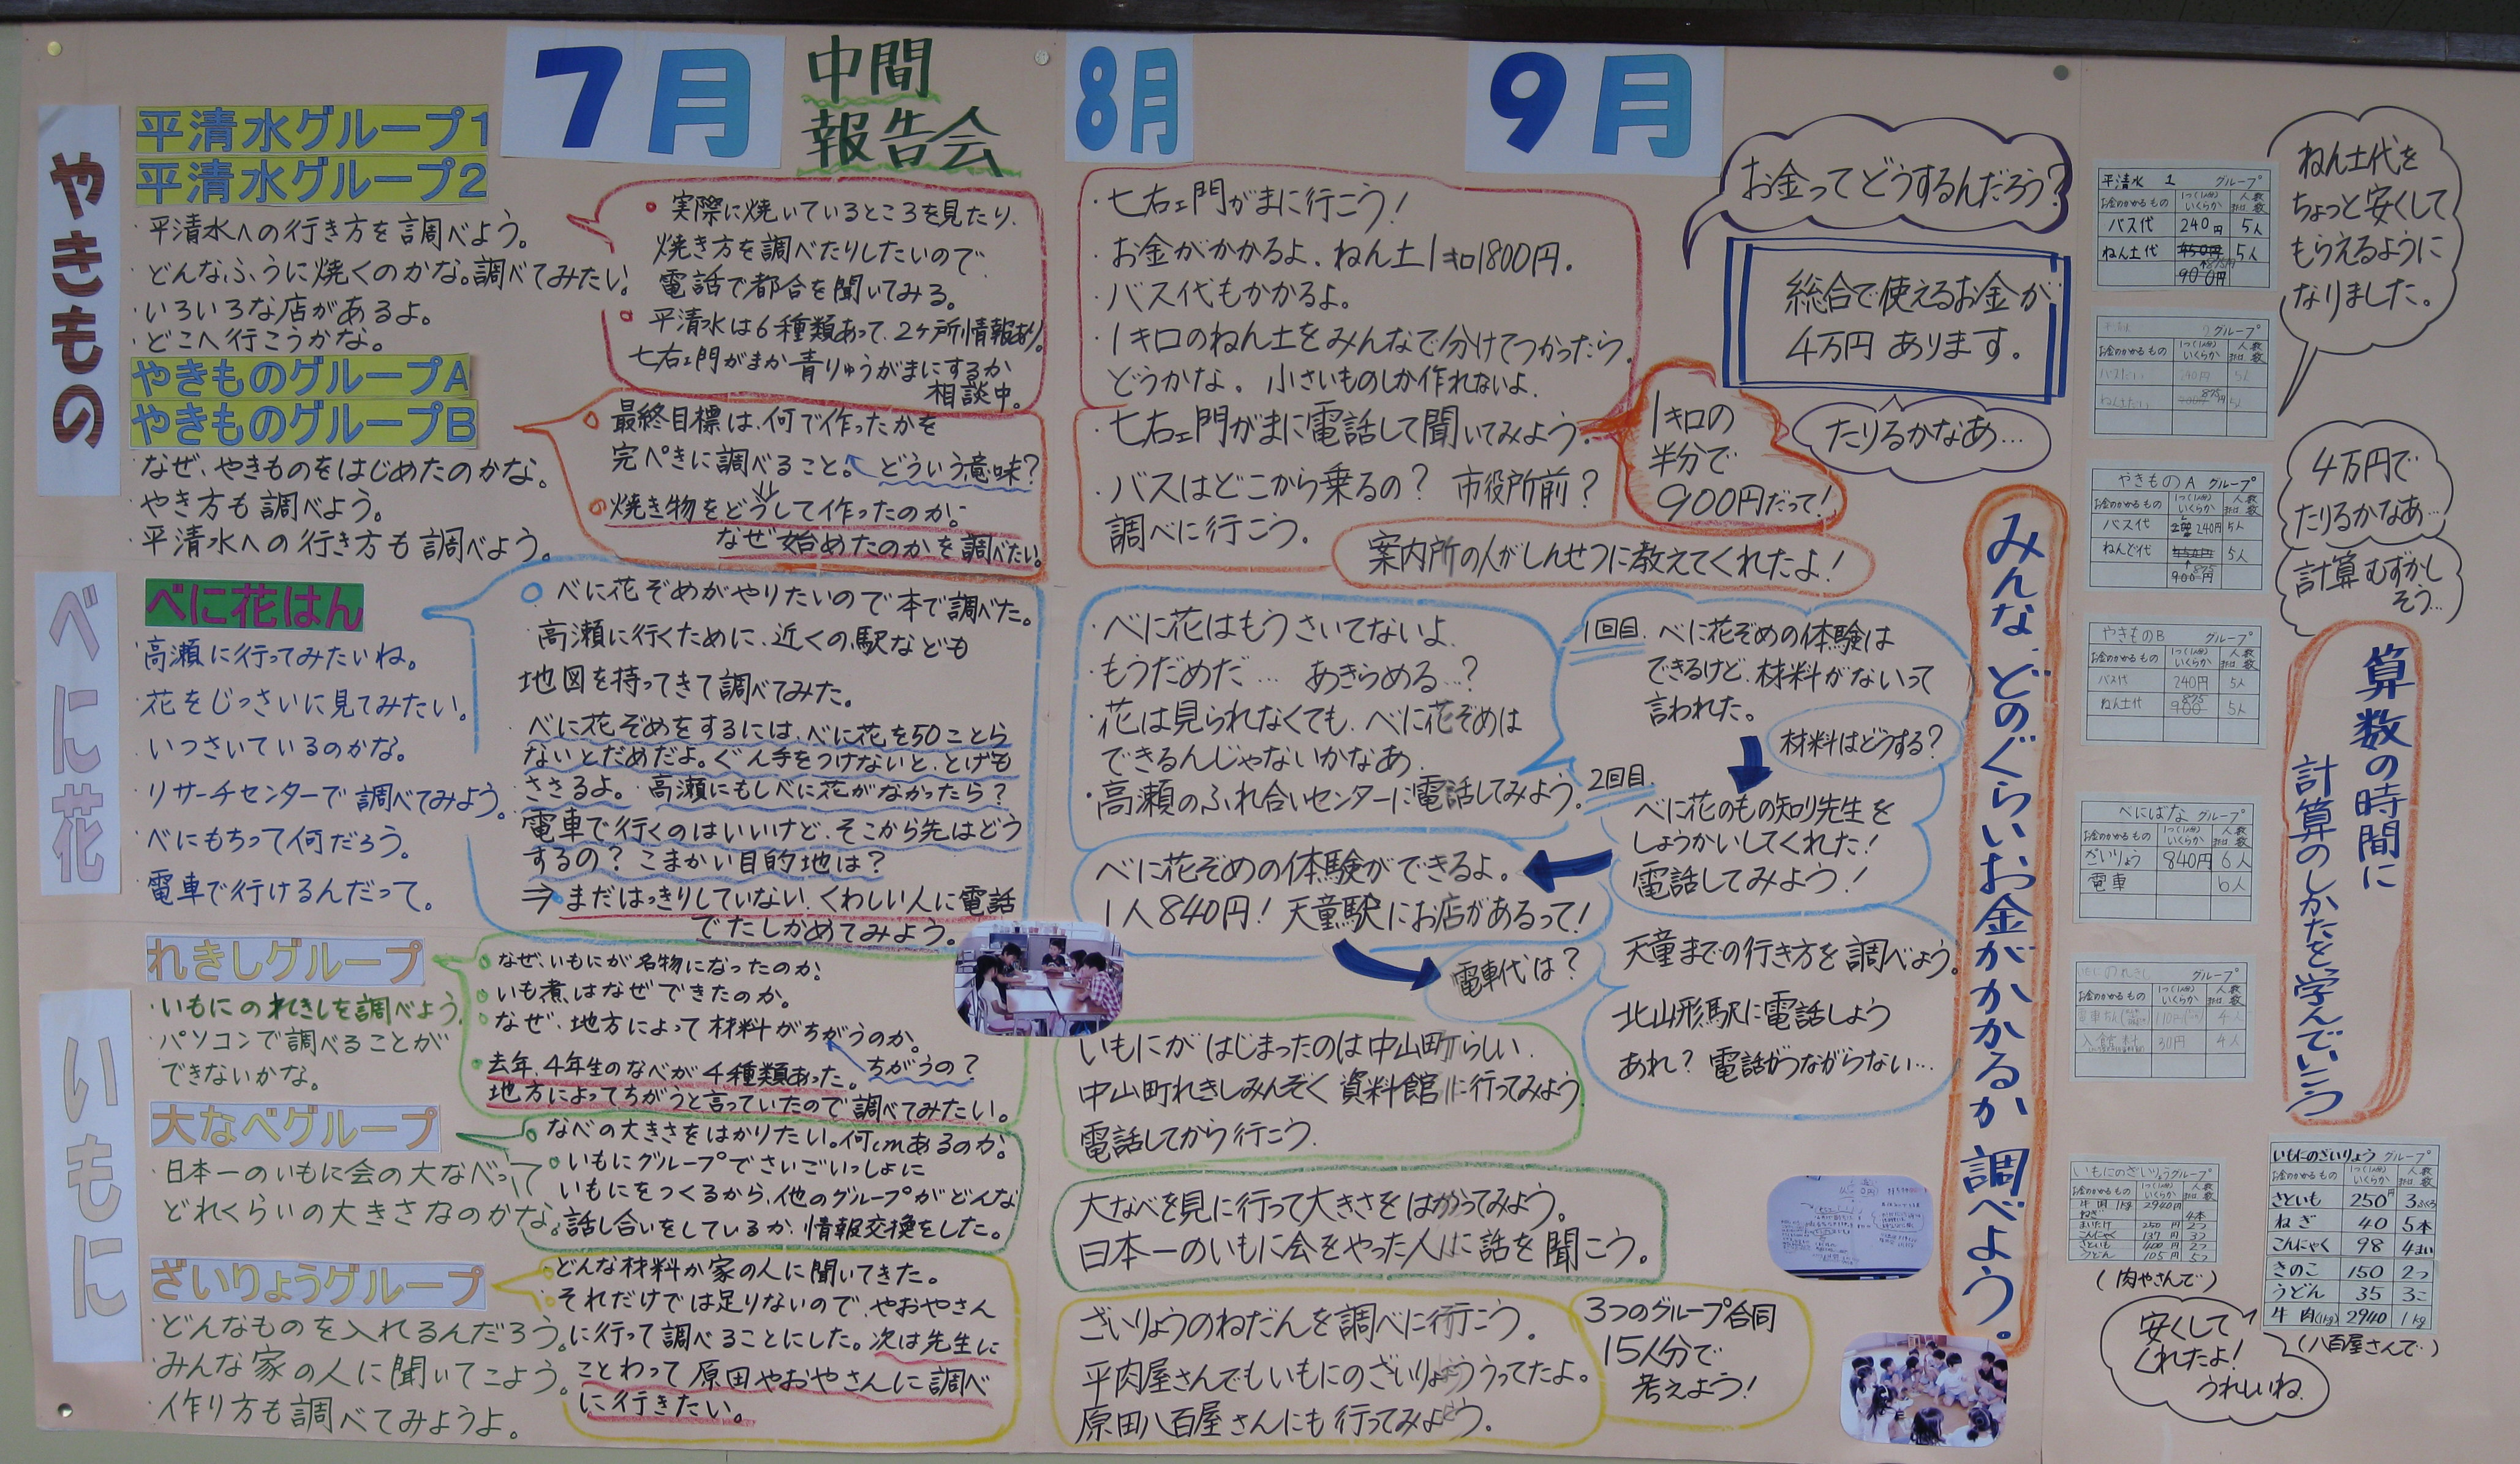 7月
中間
報告会
8月
9月
やきもの
平清水グループ1
平清水グループ2
・平清水への行き方を調べよう。
・どんなふうに焼くのかな。調べてみたい。
・いろいろな店があるよ。
・どこへ行こうかな。
やきものグループA
やきものグループB
・なぜ、やきものをはじめたのかな。
・やき方も調べよう。
・平清水への行き方も調べよう。
実際に焼いているところを見たり、
焼き方を調べたりしたいので
電話で都合を聞いてみる。
平清水は6種類あって、2ヶ所情報あり。
七右エ門がまか青りゅうがまにするか
相談中。
最終目標は、何で作ったかを
完ぺきに調べること。どういう意味?
焼き物をどうして作ったのか。
なぜ始めたのかを調べたい。
・七右エ門がまに行こう!
・お金がかかるよ。ねん土1キロ1800円。
・バス代もかかるよ。
・1キロのねん土をみんなで分けてつかったら
どうかな。小さいものしか作れないよ。
・七右エ門がまに電話して聞いてみよう。
・バスはどこから乗るの? 市役所前?
調べに行こう。
1キロの
半分で
900円だって!
案内所の人がしんせつに教えてくれたよ!
お金ってどうするんだろう?
総合で使えるお金が
4万円あります。
たりるかなあ…
べに花
べに花はん
・高瀬に行ってみたいね。
・花をじっさいに見てみたい。
・いつさいているのかな。
・リサーチセンターで調べてみよう。
・べにもちって何だろう。
・電車で行けるんだって。
べに花ぞめがやりたいので本で調べた。
高瀬に行くために、近くの駅なども
地図を持ってきて調べてみた。
べに花ぞめをするには、べに花を50ことら
ないとだめだよ。ぐん手をつけないと、とげも
ささるよ。高瀬にもしべに花がなかったら?
電車で行くのはいいけど、そこから先はどう
するの?こまかい目的地は?
⇒まだはっきりしていない、くわしい人に電話
でたしかめてみよう。
・べに花はもうさいてないよ
・もうだめだ… あきらめる…?
・花は見られなくても、べに花ぞめは
できるんじゃないかなあ
・高瀬のふれ合いセンターに電話してみよう。
1回目 べに花ぞめの体験は
できるけど、材料がないって
言われた。
材料はどうする?
2回目
べに花のもの知り先生を
しょうかいしてくれた!
電話してみよう!
べに花ぞめの体験ができるよ。
1人840円!天童駅にお店があるって!
電車代は?
天童までの行き方を調べよう。
北山形駅に電話しよう
あれ?電話がつながらない…
いもに
れきしグループ
・いもにのれきしを調べよう。
・パソコンで調べることが
できないかな。
なぜ、いもにが名物になったのか。
いも煮はなぜできたのか。
なぜ、地方によって材料がちがうのか。
去年、4年生のなべが4種類あった。ちがうの?
地方によってちがうと言っていたので調べてみたい。
いもにがはじまったのは中山町らしい
中山町れきしみんぞく資料館に行ってみよう
電話してから行こう
大なべグループ
・日本一のいもに会の大なべって
どれくらいの大きさなのかな。
なべの大きさをはかりたい。何cmあるのか。
いもにグループでさいごいっしょに
いもにをつくるから、他のグループがどんな
話し合いをしているか、情報交換をした。
大なべを見に行って大きさをはかってみよう。
日本一のいもに会をやった人に話を聞こう。
ざいりょうグループ
・どんなものを入れるんだろう。
・みんな家の人に聞いてこよう。
・作り方も調べてみようよ。
どんな材料か家の人に聞いてきた。
それだけでは足りないので、やおやさん
に行って調べることにした。次は先生に
ことわって原田やおやさんに調べ
に行きたい。
ざいりょうのねだんを調べに行こう。
平肉屋さんでもいもにのざいりょううってたよ。
原田八百屋さんにも行ってみよう。
3つのグループ合同
15人分で
考えよう!
みんな、どのぐらいお金がかかるか調べよう。
平清水 1 グループ
お金のかかるもの 1つ(1人分)いくらか 人数 または 数
バス代 240円 5人
ねん土代 450円 5人
875円
900円
2グループ
お金のかかるもの 1つ(1人分)いくらか 人数 または 数
やきものA グループ
お金のかかるもの 1つ(1人分)いくらか 人数 または 数
バス代 240円 5人
ねんど代 450円 5人
875
900円
やきものB グループ
お金のかかるもの 1つ(1人分)いくらか 人数 または 数
バス代 240円 5人
ねん土代 875 900 5人
べにばな グループ
お金のかかるもの 1つ(1人分)いくらか 人数 または 数
ざいりょう 840円 6人
電車 6人
グループ
お金のかかるもの 1つ(1人分)いくらか 人数 または 数
4人
入館料 4人
いもにのざいりょうグループ
お金のかかるもの 1つ(1人分)いくらか 人数 または 数
牛肉1kg 2940円
ねぎ 4本
まいたけ 250円 2つ
こんにゃく 137円 3つ
さといも 400円 2つ
うどん 105円 5つ
(肉やさんで)
いもにのざいりょう グループ
お金のかかるもの 1つ(1人分)いくらか 人数 または 数
さといも 250円 3ふくろ
ねぎ 40 5本
こんにゃく 98 4まい
きのこ 150 2つ
うどん 35 3こ
牛肉(1kg) 2940 1kg
(八百屋さんで)
安くして
くれたよ!
うれしいね
ねん土代を
ちょっと安くして
もらえるように
なりました。
4万円で
たりるかなあ…
計算むずかし
そう…
算数の時間に
計算のしかたを学んでいこう